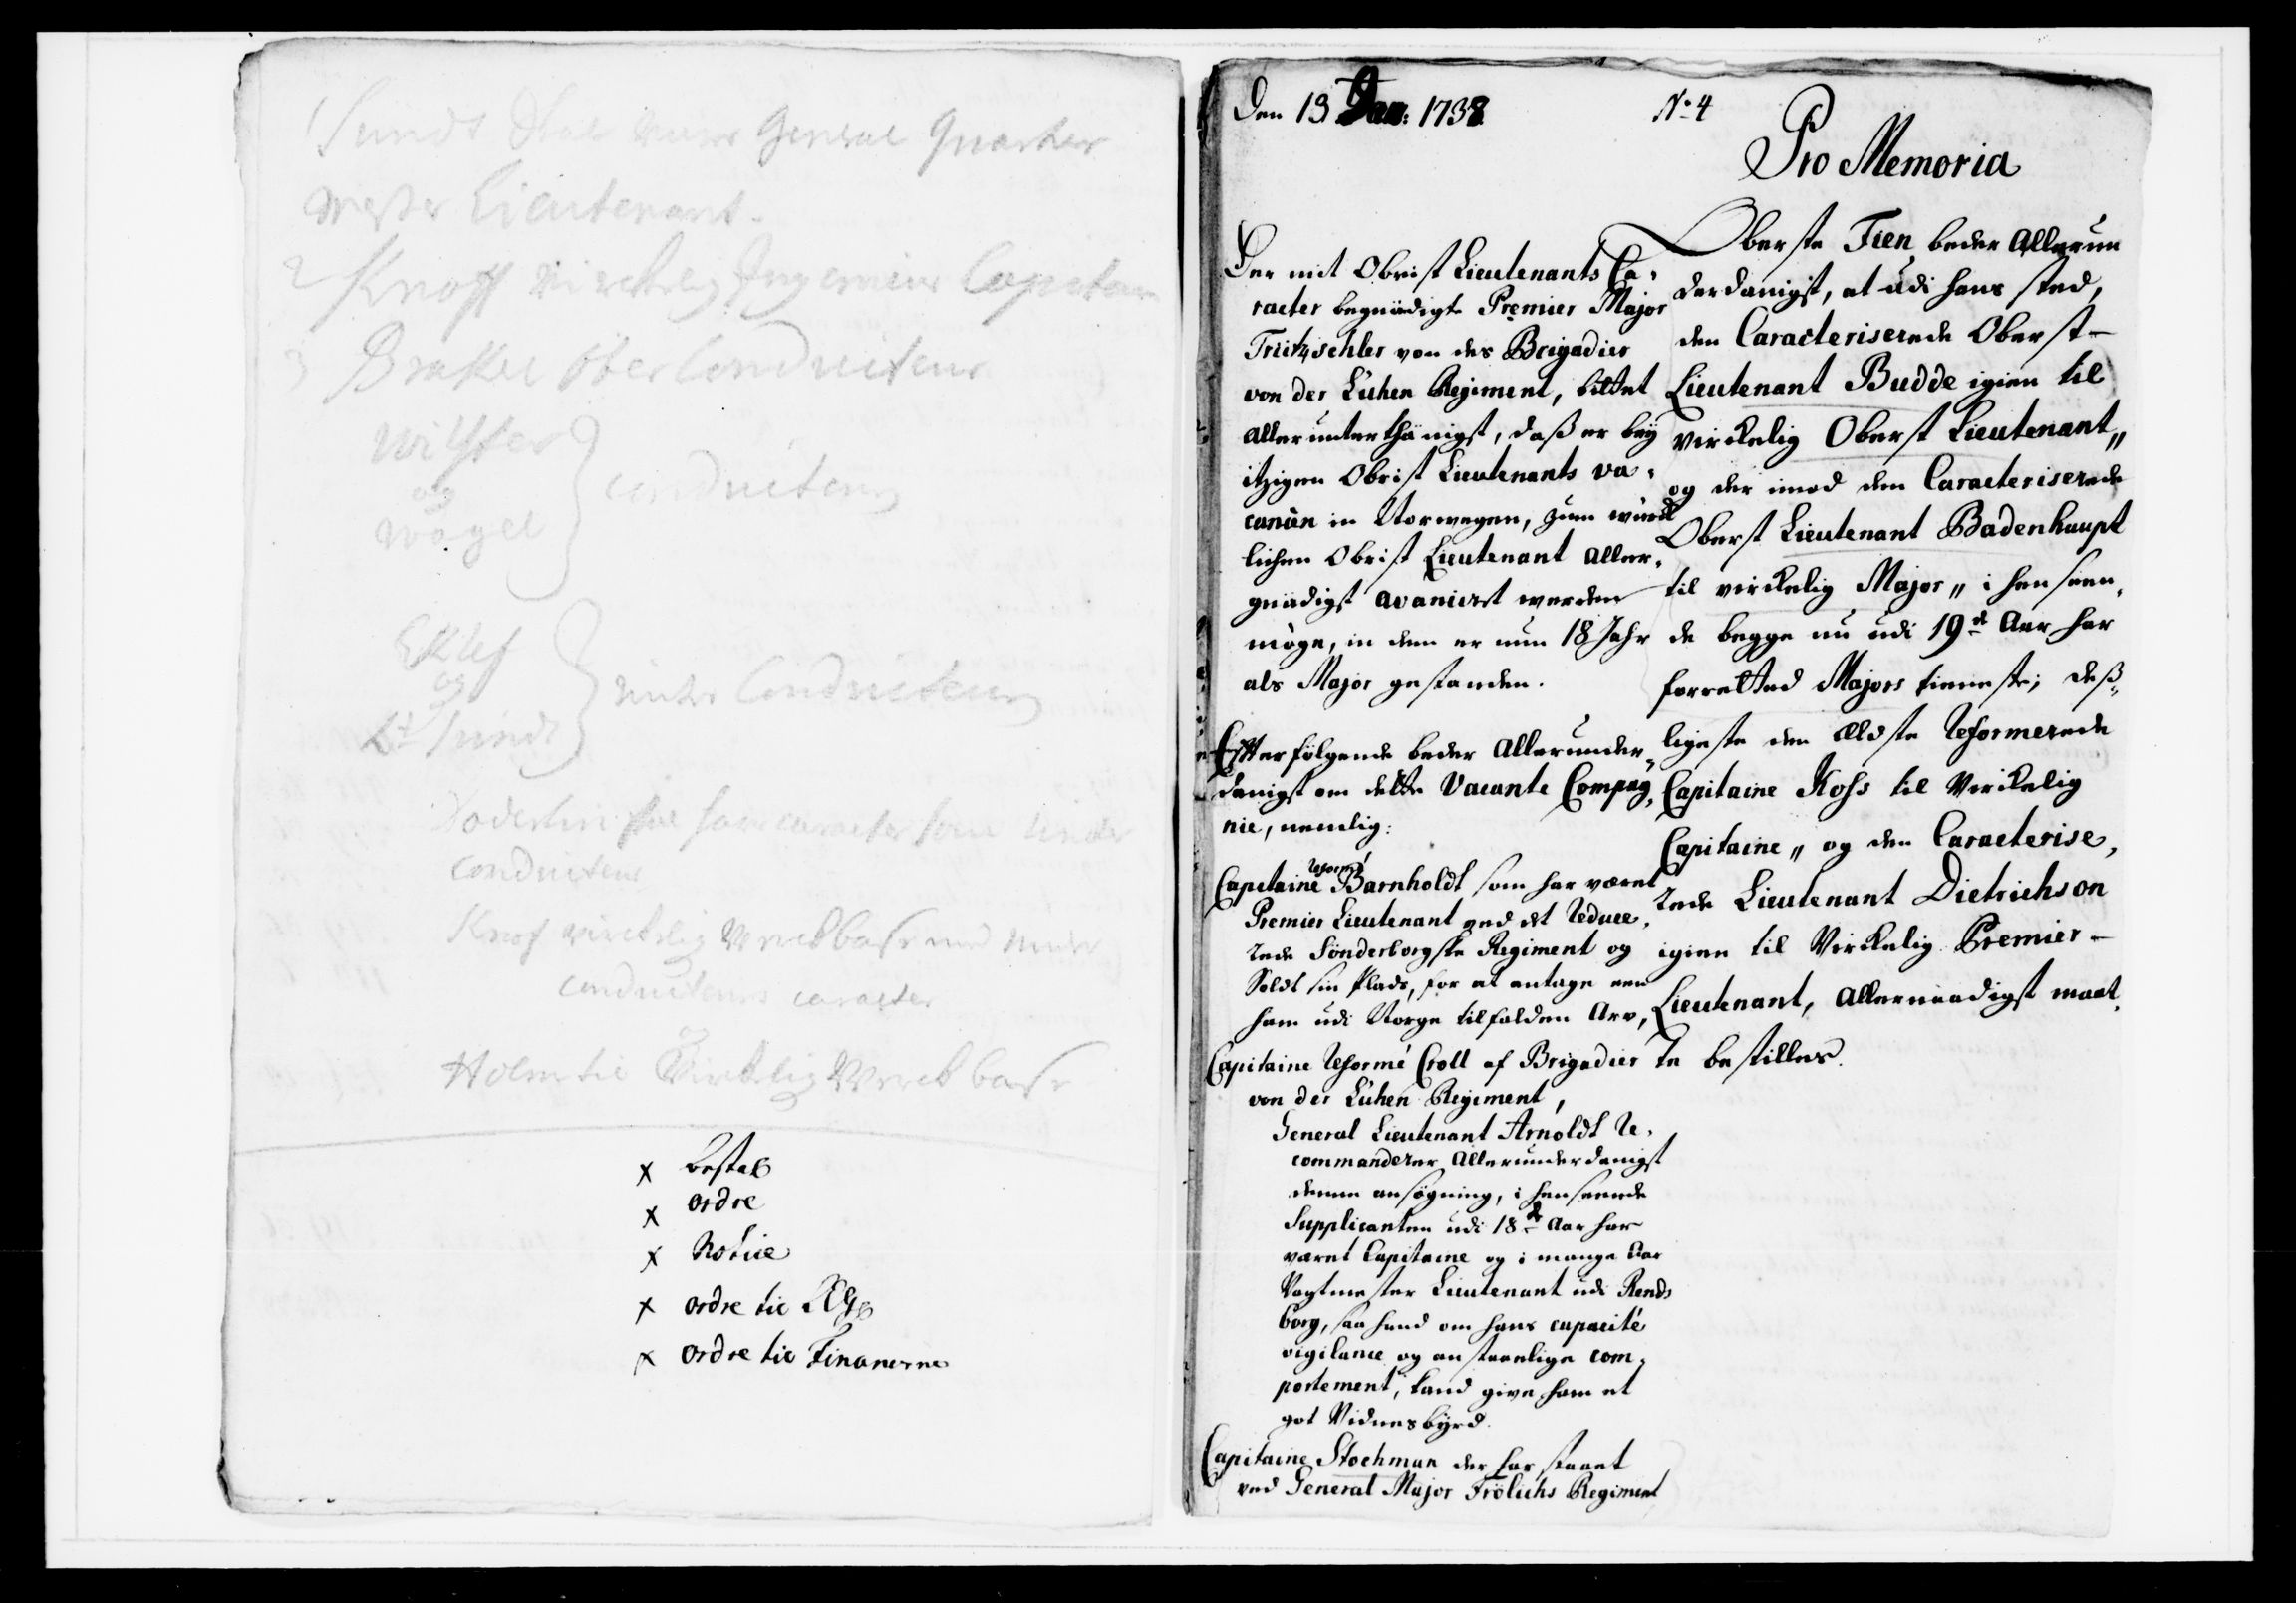 1 Sundt skal være General Quarteer
Mester Lieutenant.
2 Knoff virckelig Ingenieur Capitain
3 Brakel OberConducteur
Wilster
og
Wagel
Conducteurs
Eklef
og
Lt Sundt
under Conducteurs
skal have caracter som Under
Conducteur
Knof virckelig Werckbase med under
conducteurs caracter
og
Holm til Virkelig Werckbase
x Bestal
x ordre
x Notice
x ordre til
x ordre til Finanerne
Den 13 Jan: 1738
No 4
Pro Memoria
Der mit Obrist Lieutenants Ca-
racter begnädigte Premier Major
Tritzschler von des Brigadier
von der Lühen Regiment, bittet
allerunterthänigst, daß er beÿ
itzigen Obrist Lieutenants va-
cancen in Norwegen, zum würck
lichen Obrist Lieutenant Aller-
gnädigst avanciret werden
möge, in dem er nun 18 Jahr
als Major gestanden.
Efterfölgende beder Allerunder-
danigst om dette vacante Compag-
nie, nemlig:
Capitaine reformé Barnholdt som har været
Premier Lieutenant ved det reduce-
rede Sönderborgske Regiment og
Soldt sin Plads, for at antage een
ham udi Norge tilfalden Arv,
Capitaine reformé Croll af Brigadier
von der Lühen Regiment,
General Lieutenant Arnoldt re-
commanderer Allerunderdanigst
denne ansögning, i henseende
Supplicanten udi 18de Aar har
været Capitaine og i mange Aar
Vagtmester Lieutenant udi Rends
borg, saa hand om hans capacité
vigilance og anstændige com-
portement, kand give ham et
got Vidnesbÿrd.
Capitaine Stochman der har staaet
ved General Major Frölichs Regiment
Oberste Fien beder Allerun
derdanigst, at udi hans sted,
den Caracteriserede Oberst-
Lieutenant Budde igien til
virckelig Oberst Lieutenant„
og der imod den Caracteriserede
Oberst Lieutenant Badenhaupt
til virckelig Major„ i henseen-
de begge nu udi 19de Aar har
forrettet Majors tieneste; deß-
ligeste den ældste reformerede
Capitaine Koss til Virckelig
Capitaine„ og den Caracterise-
rede Lieutenant Dietrichson
igien til Virckelig Premier-
Lieutenant, Allernaadigst maat-
te bestilles.